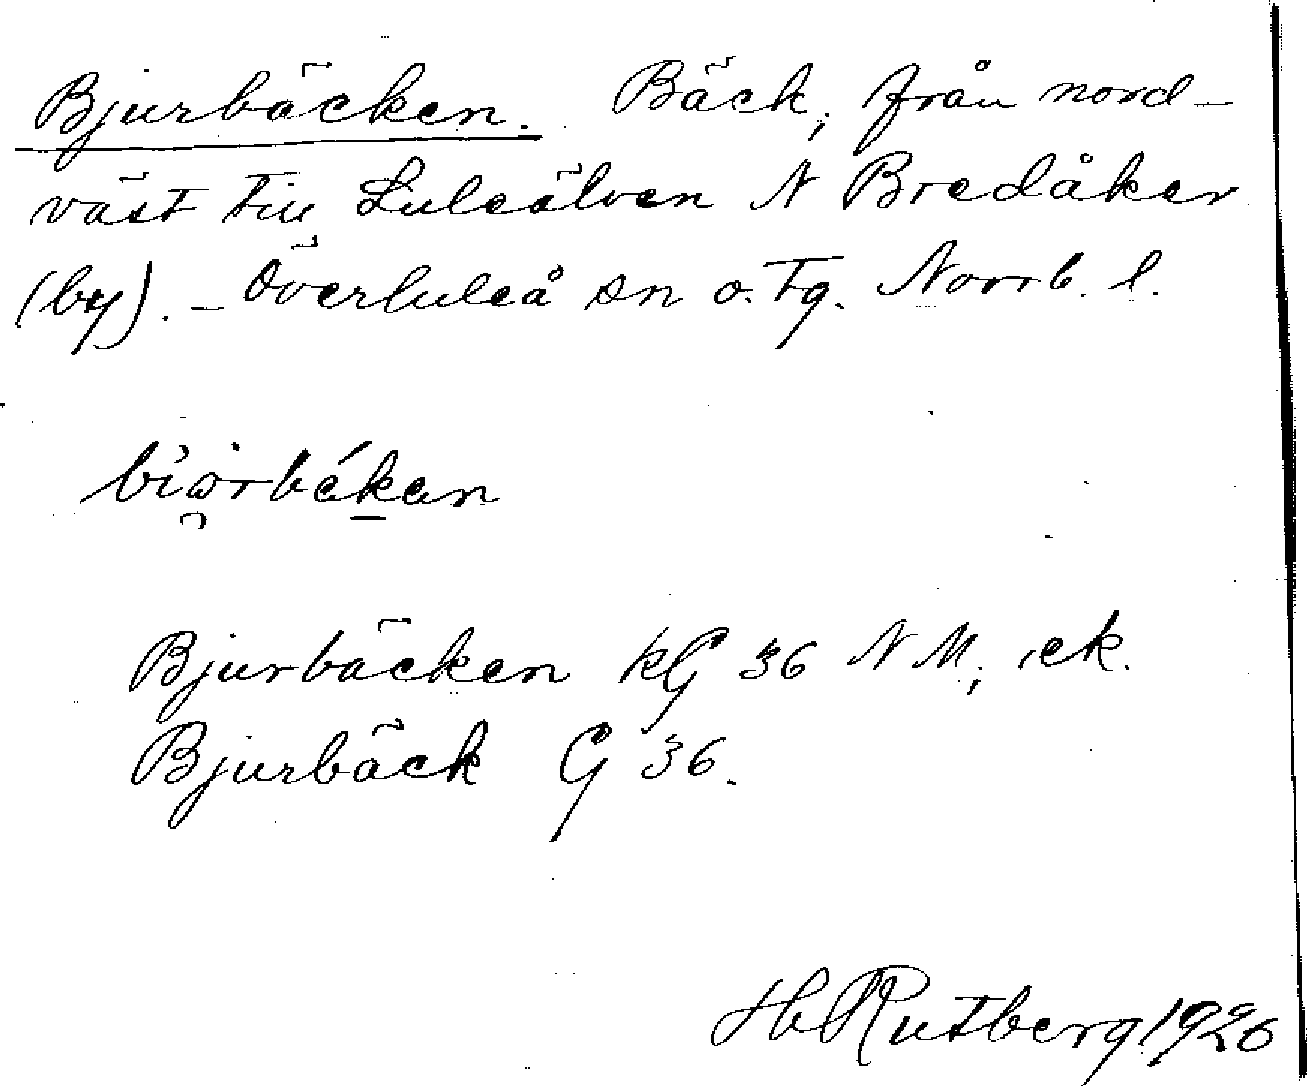 Bjurbäcken. Bäck, från nord-
väst till Luleälven N Bredåker
(by). - Överluleå sn o. tg. Norrb. l.
Bjurbäcken kG 36 NM, ek.
Bjurbäck G 36.
H Rutberg 1926